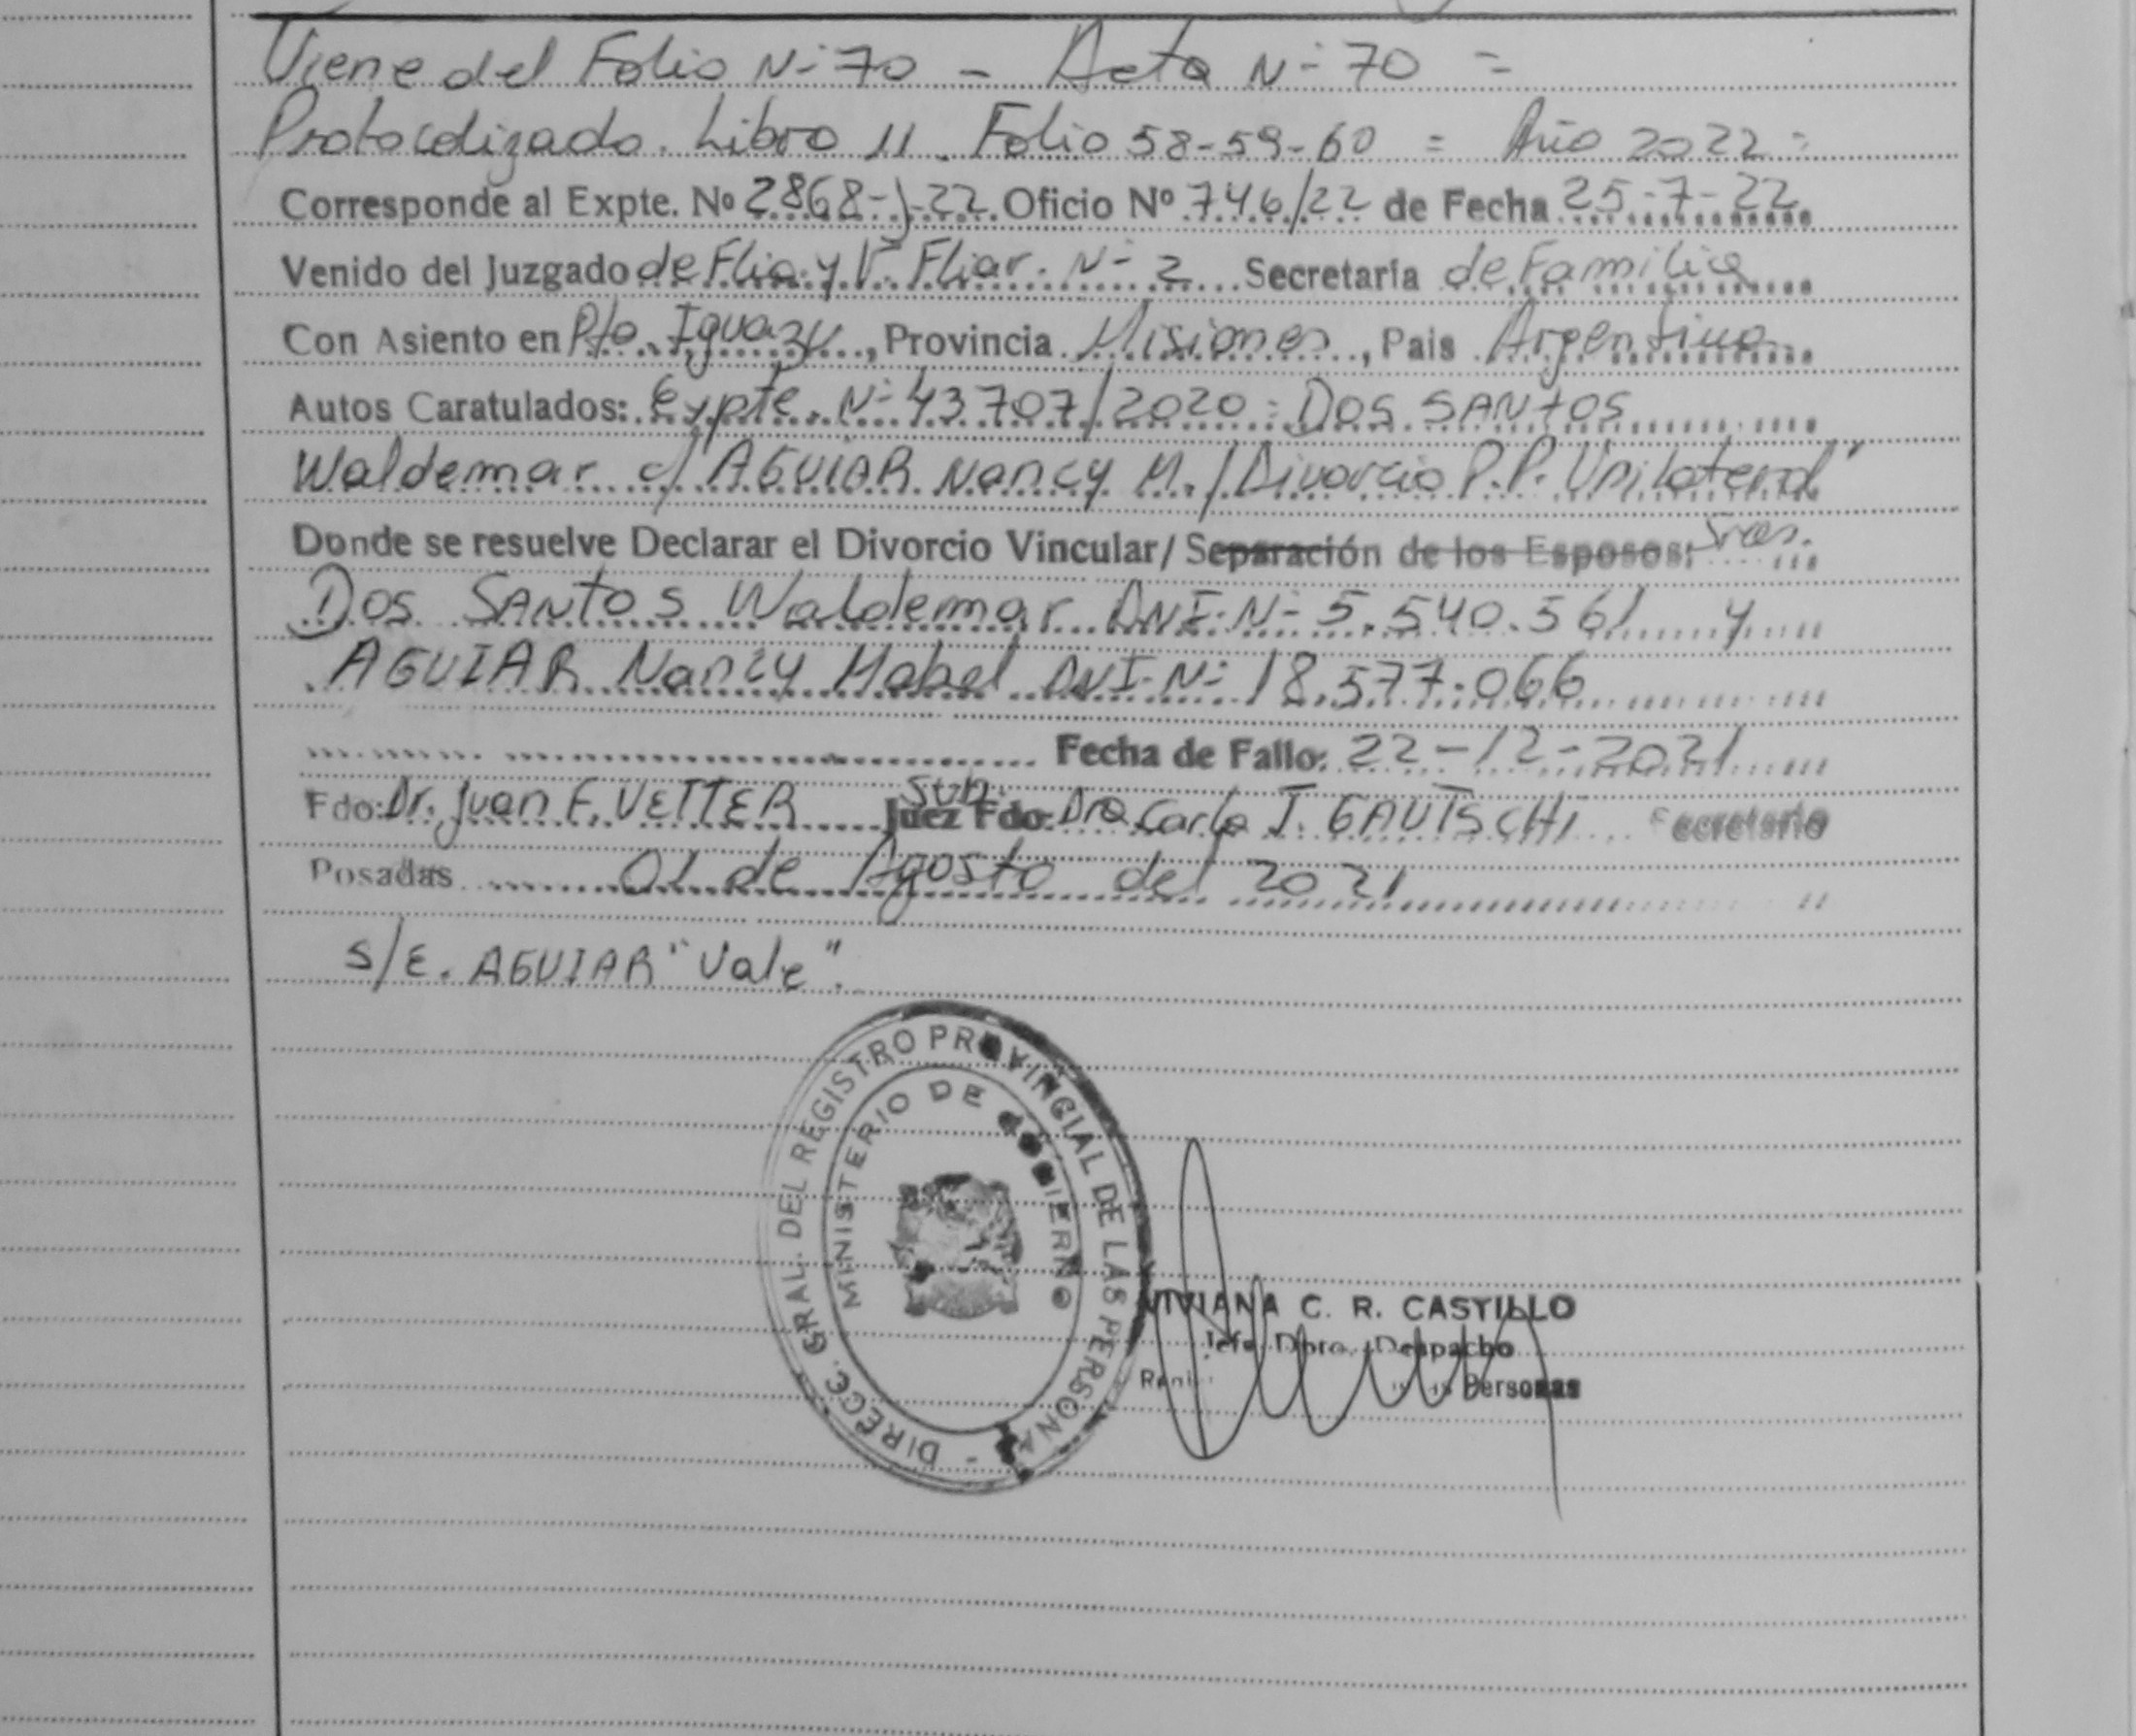 Viene del Folio N- 70 - Acta N- 70 =
Protocolizado. Libro 11. Folio 58-59-60 = Año 2022 =
Corresponde al Expte. Nº 2868-J-22 Oficio Nº 746/22 de Fecha 25-7-22
Venido del Juzgado de Flia. y V. Fliar. N- 2 Secretaría de Familia
Con Asiento en Pto. Iguazu, Provincia Misiones, Pais Argentina
Autos Caratulados: Expte. N- 43707/2020: Dos SANTOS
Waldemar c/ AGUIAR Nancy M. / Divorcio P.P. Unilateral"
Donde se resuelve Declarar el Divorcio Vincular/ Separación de los Esposos: Sres.
Dos SANTOS Waldemar DNI. N- 5.540.561 y
AGUIAR Nancy Mabel DNI- N- 18.577.066
Fecha de Fallo: 22-12-2021
Fdo: Dr. Juan F. VETTER Juez Fdo: Dra Carla I. GAUTSCHI Secretario
Posadas 01 de Agosto del 2021
S/E. AGUIAR "Vale".
DIRECC. GRAL. DEL REGISTRO PROVINCIAL DE LAS PERSONAS
MINISTERIO DE GOBIERNO
VIVIANA C. R. CASTILLO
Jefa Dpto. Despacho
Personas